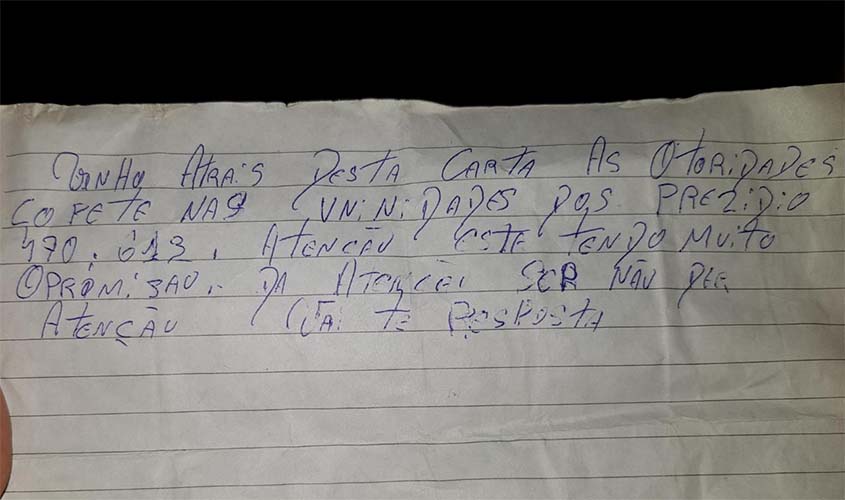 VENHO ATRAIS DESTA CARTA AS OTORIDADES
COPETE NAS UNINIDADES DOS PREZIDIO
470.613. ATENÇÃO ESTE TENDO MUITO
OPROMIZAO. DA ATENÇÉI SER NÃO DER
ATENÇÃO VAI TE RESPOSTA